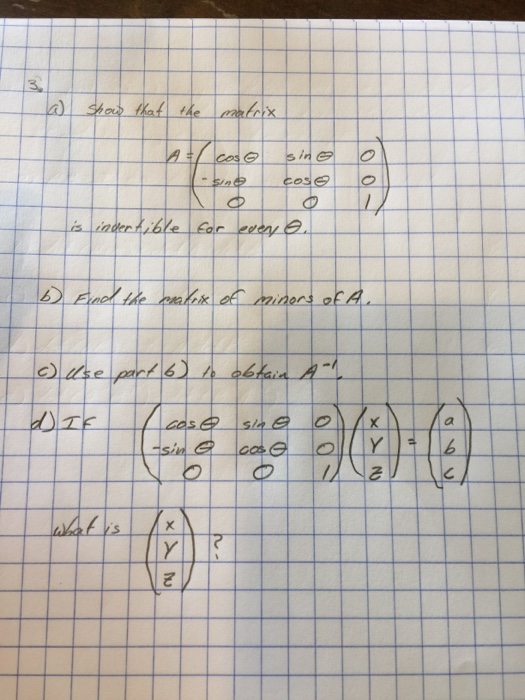 3.
a) Show that the matrix
A = ( cosθ sinθ 0
-sinθ cosθ 0
0 0 1 )
is invertible for every θ.
b) Find the matrix of minors of A.
c) Use part b) to obtain A⁻¹.
d) IF ( cosθ sinθ 0 ) ( x ) = ( a )
-sinθ cosθ 0 Y b
0 0 1 z c
what is ( x
Y ?
z )